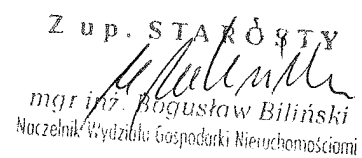 Z up. STAROSTY
mgr inż. Bogusław Biliński
Naczelnik Wydziału Gospodarki Nieruchomościami